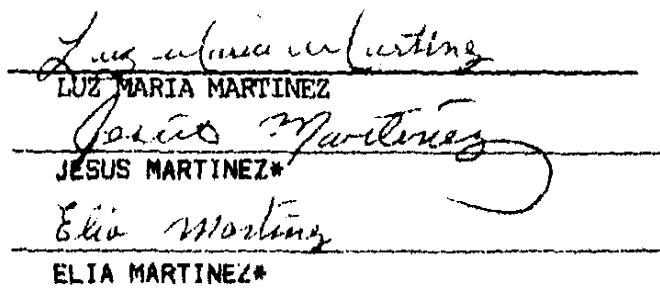 Luz Maria Martinez
LUZ MARIA MARTINEZ
Jesús Martínez
JESUS MARTINEZ*
Elia Martinez
ELIA MARTINEZ*